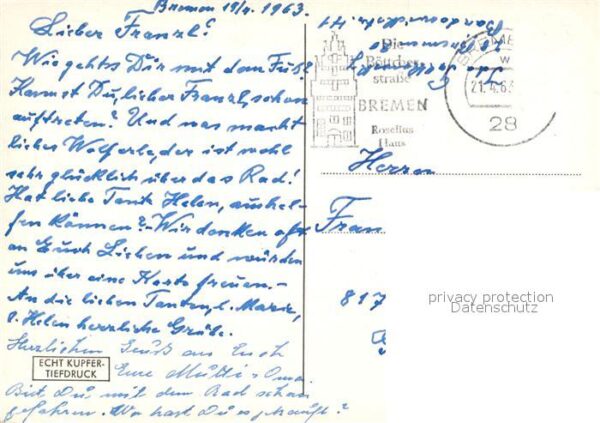 Bremen 19/4. 1963.
Lieber Franzl!
Wie gehts Dir mit dem Fuß?
Kannst Du, lieber Franzl, schon
auftreten? Und was macht
lieber Wolferle, der ist wohl
sehr glücklich über das Rad!
Hat liebe Tante Helen, aushel-
fen können? - Wir denken oft
an Euch Lieben und würden
uns über eine Karte freuen. -
An die lieben Tanten, l. Marie,
l. Helen herzliche Grüße.
Herzlichen Gruß an Euch
Eure Mutti u Oma.
Bist Du mit dem Rad schon
gefahren. Wo hast Du es gekauft?
ECHT KUPFER-
TIEFDRUCK
Die
Böttcher-
straße
BREMEN
Roselius
Haus
21.4.63
28
Herrn
Fran
817
privacy protection
Datenschutz